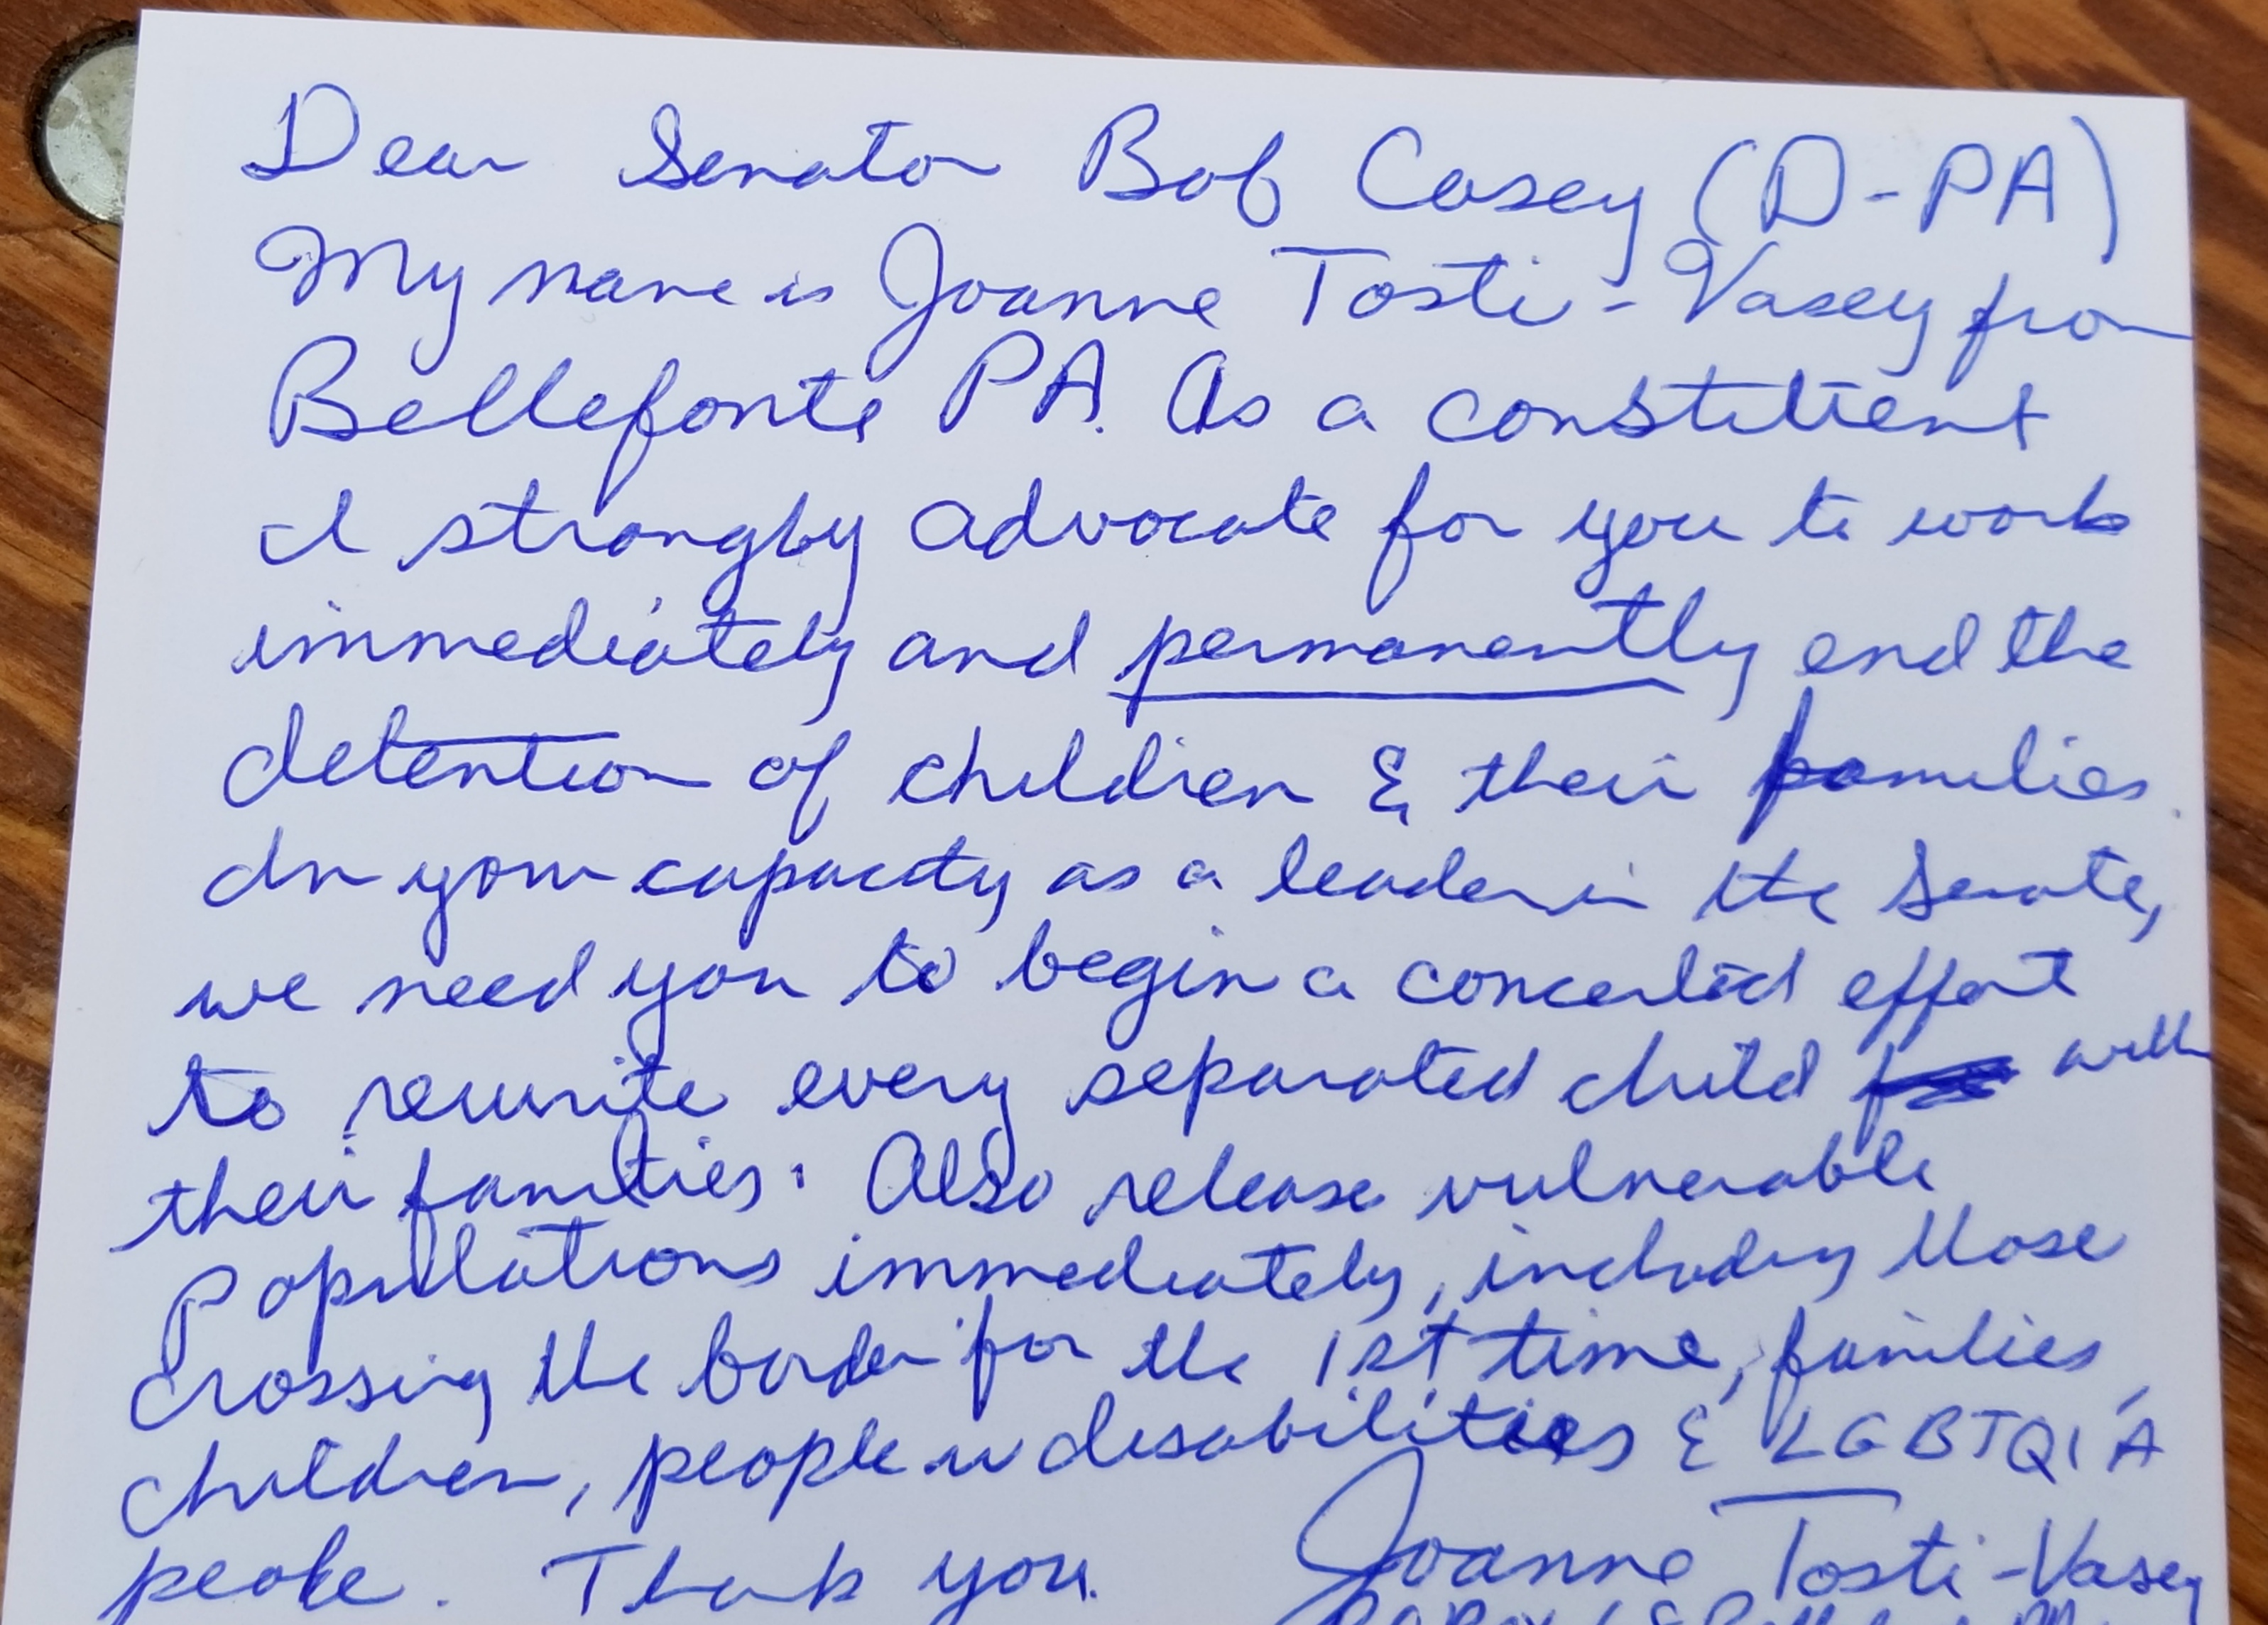 Dear Senator Bob Casey (D-PA)
My name is Joanne Tosti-Vasey from
Bellefonte PA. As a constituent
I strongly advocate for you to work
immediately and permanently end the
detention of children & their families.
In your capacity as a leader in the Senate,
we need you to begin a concerted effort
to reunite every separated child with
their families. Also release vulnerable
Populations immediately, including those
crossing the border for the 1st time, families,
children, people w disabilities & LGBTQIA
people. Thank you. Joanne Tosti-Vasey